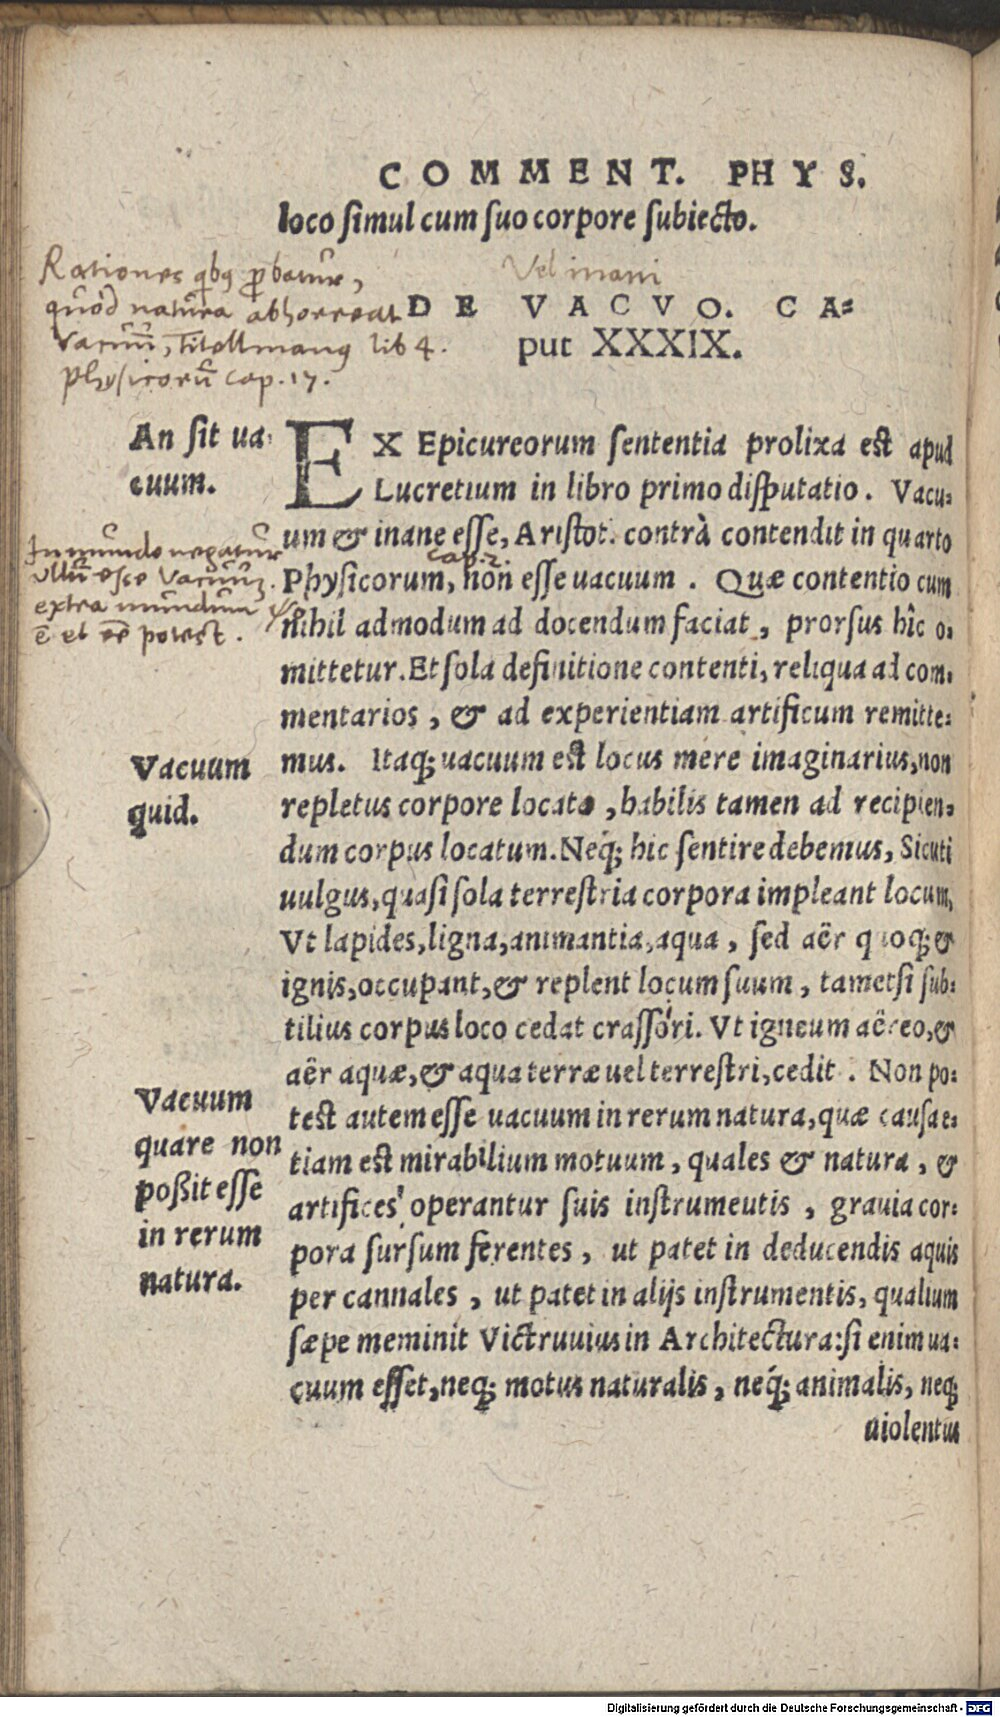 COMMENT. PHYS.
loco ſimul cum ſuo corpore ſubiecto.
Rationes qbꝰ ꝓbatur,
quòd natura abhorreat
Vacuũ, Titellmanꝰ lib 4.
physicorũ cap. 17.
Vel inani
DE VACVO. CA⸗
put XXXIX.
An ſit ua⸗
cuum.
EX Epicureorum ſententia prolixa est apud
Lucretium in libro primo diſputatio. Vacu⸗
um & inane eſſe, Ariſtot. contrà contendit in quarto
cap. 7.
Phyſicorum, non eſſe uacuum. Quæ contentio cum
In mundo negatur
ullũ esse Vacuum.
extra mundum
ẽ et eẽ potest.
nihil admodum ad docendum faciat, prorſus hîc o⸗
mittetur. Et ſola definitione contenti, reliqua ad com⸗
mentarios, & ad experientiam artificum remitte⸗
mus. Itaq; uacuum est locus mere imaginarius, non
Vacuum
quid.
repletus corpore locato, habilis tamen ad recipien⸗
dum corpus locatum. Neq́; hic ſentire debemus, Sicuti
uulgus, quaſi ſola terreſtria corpora impleant locum,
Vt lapides, ligna, animantia, aqua, ſed aër quoq; &
ignis, occupant, & replent locum ſuum, tametſi ſub⸗
tilius corpus loco cedat craſſori. Vt igneum aëreo, &
aër aquæ, & aqua terræ uel terreſtri, cedit. Non po⸗
Vacuum
quare non
poßit eſſe
in rerum
natura.
test autem eſſe uacuum in rerum natura, quæ cauſa e⸗
tiam est mirabilium motuum, quales & natura, &
artifices operantur ſuis inſtrumeutis, grauia cor⸗
pora ſurſum ferentes, ut patet in deducendis aquis
per cannales, ut patet in alijs inſtrumentis, qualium
ſæpe meminit Victruuius in Architectura: ſi enim ua⸗
cuum eſſet, neq; motus naturalis, neq́; animalis, neq;
uiolentus
Digitalisierung gefördert durch die Deutsche Forschungsgemeinschaft - DFG